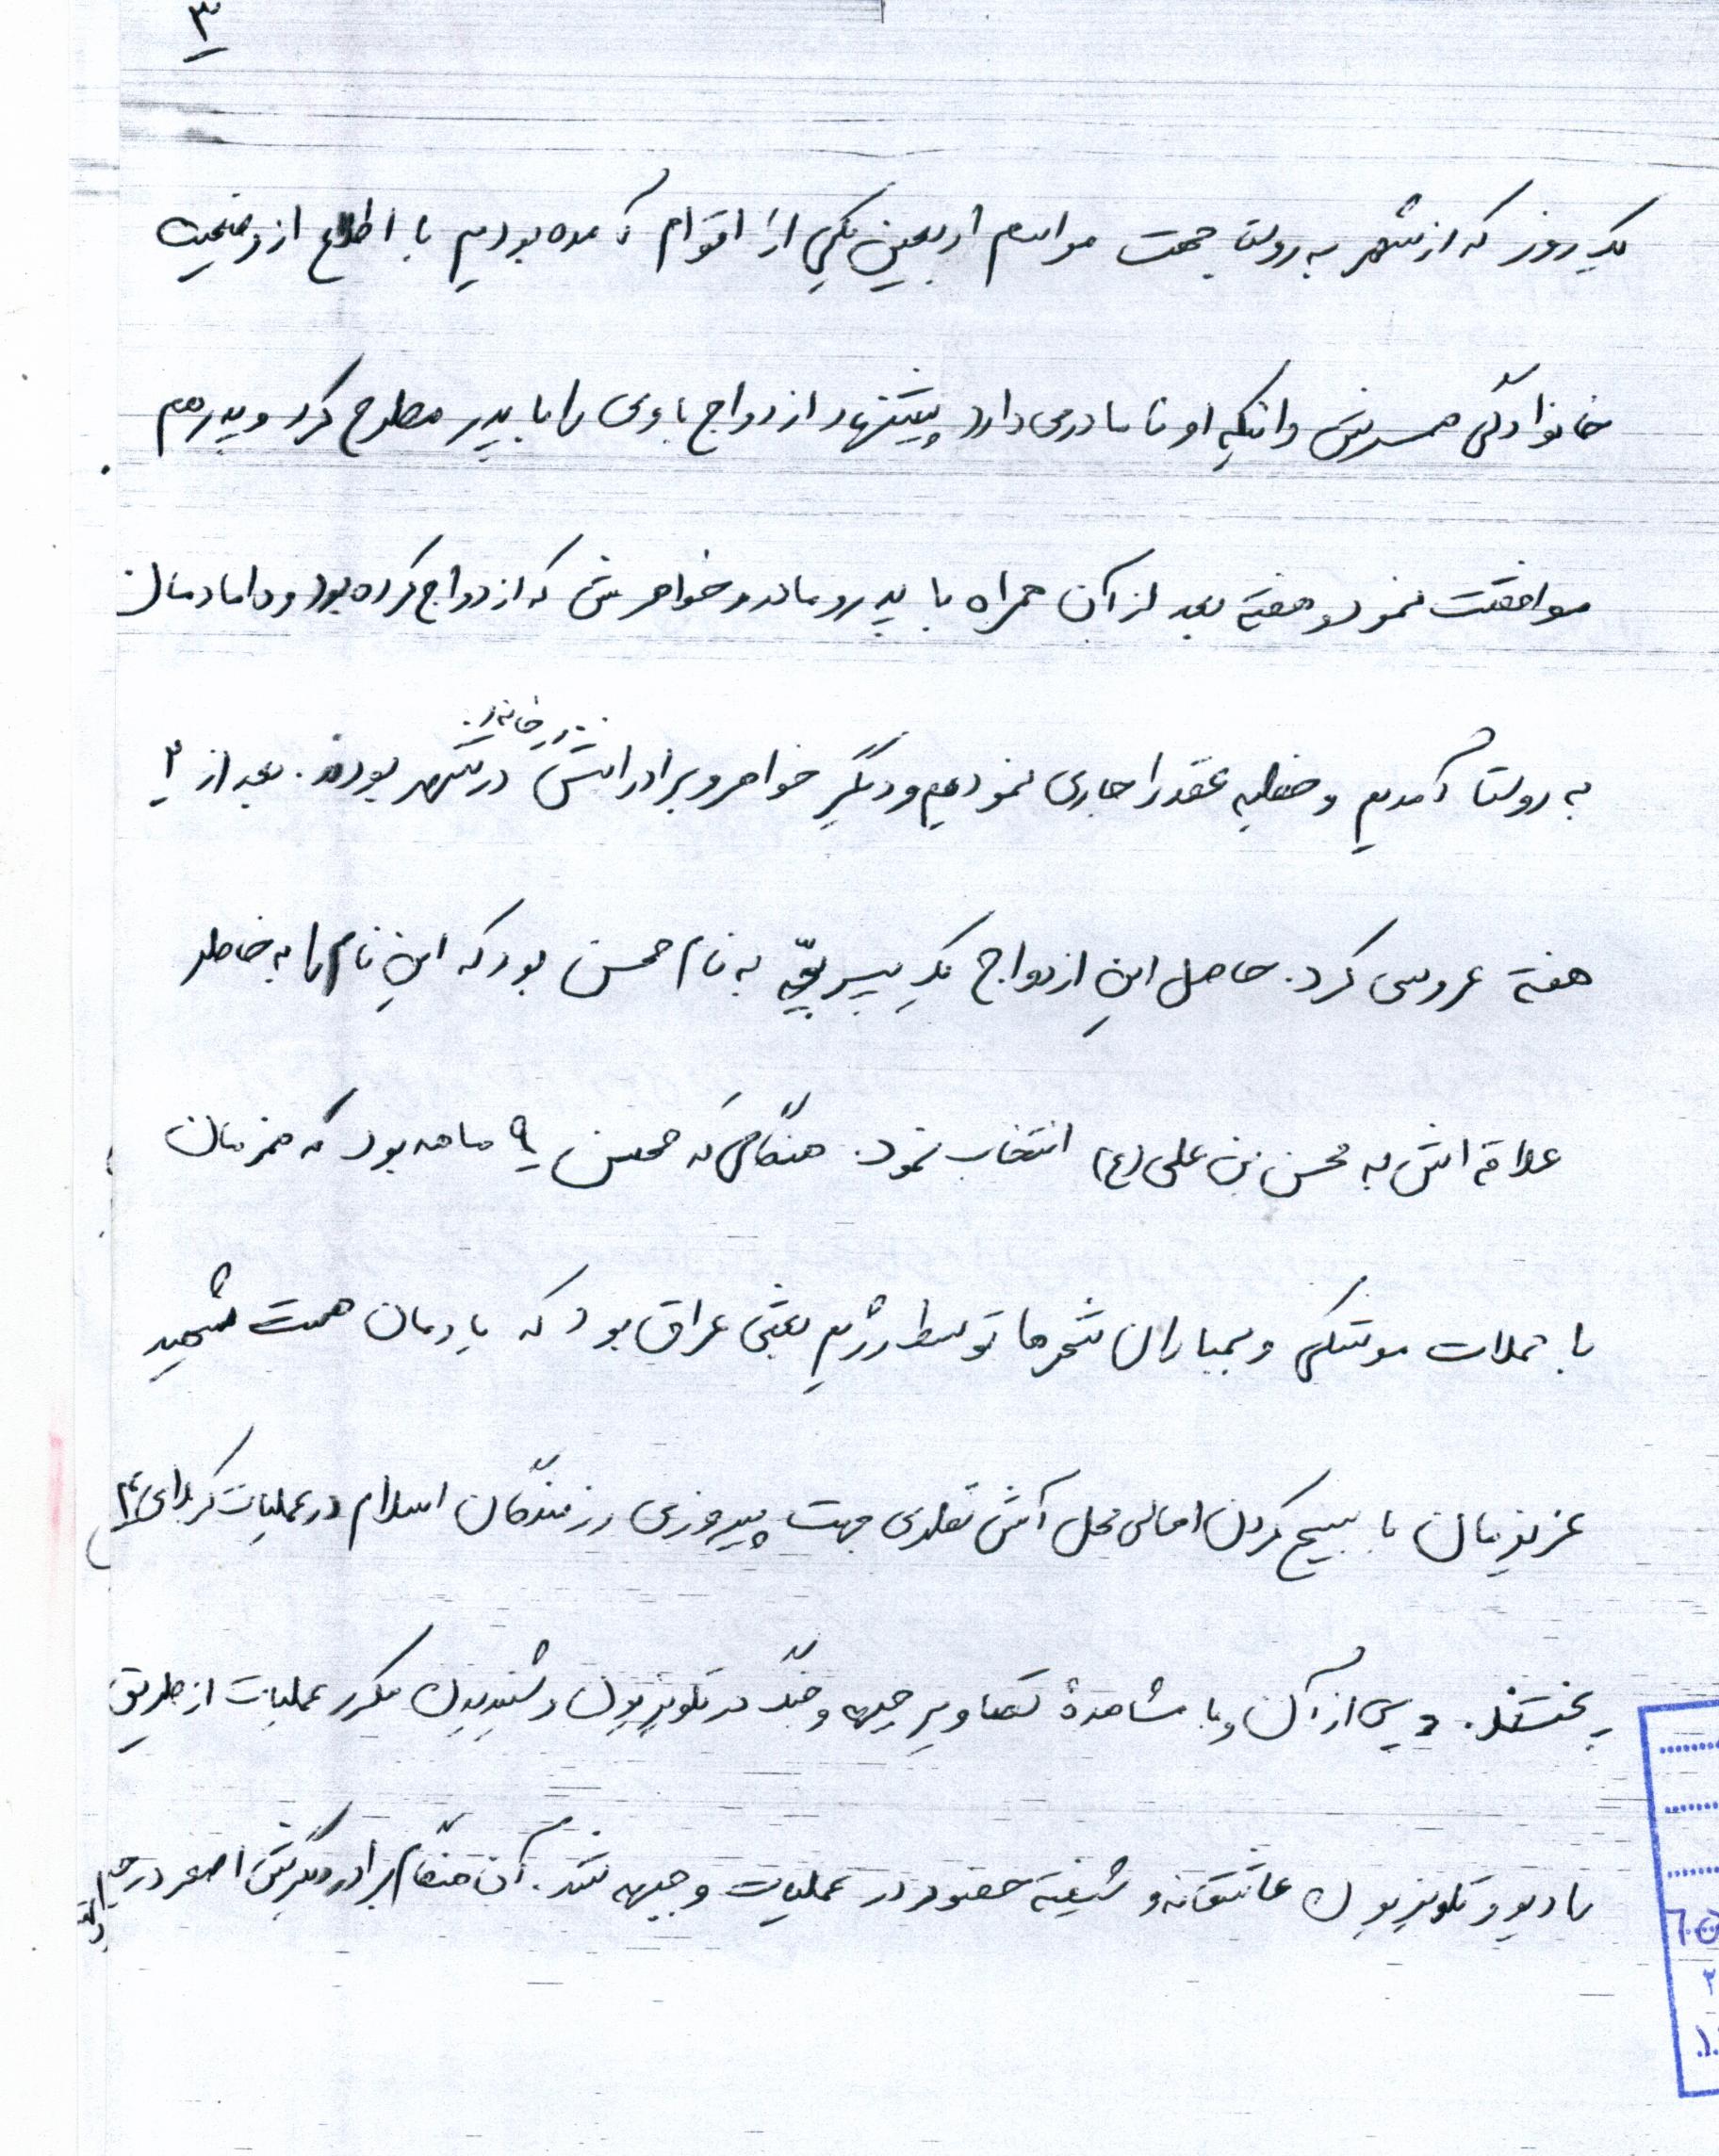 ۳
یک روز که از شهر به روستا جهت مراسم اربعین یکی از اقوام آمده بودیم با اطلاع از وضعیت
خانوادگی همسرش و اینکه او نامادری دارد پیشنهاد ازدواج با وی را با پدر مطرح کرد و پدرم هم
موافقت نمود و هفته بعد از آن همراه با پدر و مادر و خواهرش که ازدواج کرده بود و دامادمان
در خانه
به روستا آمدیم و خطبه عقد را جاری نمودیم و دیگر خواهر و برادرانش در شهر بودند. بعد از ۲
هفته عروسی کرد. حاصل این ازدواج یک پسر بچّه به نام محسن بود که این نام را به خاطر
علاقه اش به محسن بن علی (ع) انتخاب نمود. هنگامی که محسن ۹ ماهه بود که همزمان
با حملات موشکی و بمباران شهرها توسط رژیم بعثی عراق بود که یادمان هست شهید
عزیزمان با بسیج کردن اهالی محل آش نذری جهت پیروزی رزمندگان اسلام در عملیات کربلای ۴
پختند. و پس از آن و با مشاهدهٔ تصاویر جبهه و جنگ در تلویزیون و شنیدن مکرر عملیات از طریق
رادیو و تلویزیون عاشقانه و شیفته حضور در عملیات و جبهه شد. آن هنگام برادر دیگرش اصغر در جبهه
۲